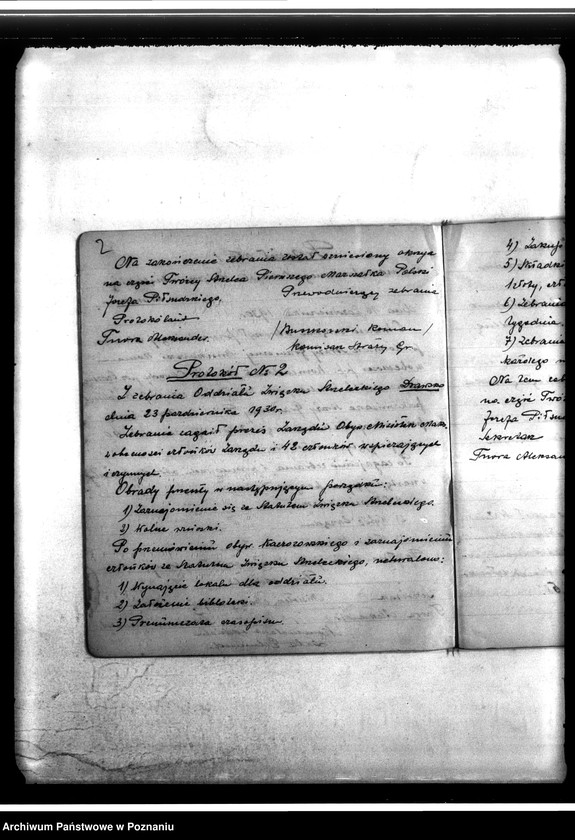 2
Na zakończenie zebrania został wzniesiony okrzyk
na cześć Twórcy Strzelca Pierwszego Marszałka Polski
Józefa Piłsudskiego.
Przewodniczący zebrania
Protokólant
Tuora Aleksander.
/ Roman /
Komisarz Straży Gr.
Protokół № 2
Z zebrania Oddziału Związku Strzeleckiego Drawsko
dnia 23 października 1930r.
Zebranie zagaił prezes Zarządu Obyw.
w obecności członków Zarządu i 42 członków wspierających
i czynnych.
Obrady przeszły w następującym porządku:
1) Zaznajomienie się ze Statutem Związku Strzeleckiego.
2) Wolne wnioski.
Po przemówieniu obyw. Kaczorowskiego i zaznajomieniu
członków ze Statutem Związku Strzeleckiego, uchwalono:
1) Wynajęcie lokalu dla oddziału.
2) Założenie biblioteki.
3) Prenumerata czasopism.
4)
5) Składki
1 złoty,
6) Zebranie
tygodnia.
7) Zebranie
każdego
Na tem
na cześć
Józefa
Sekretarz
Tuora
Archiwum Państwowe w Poznaniu